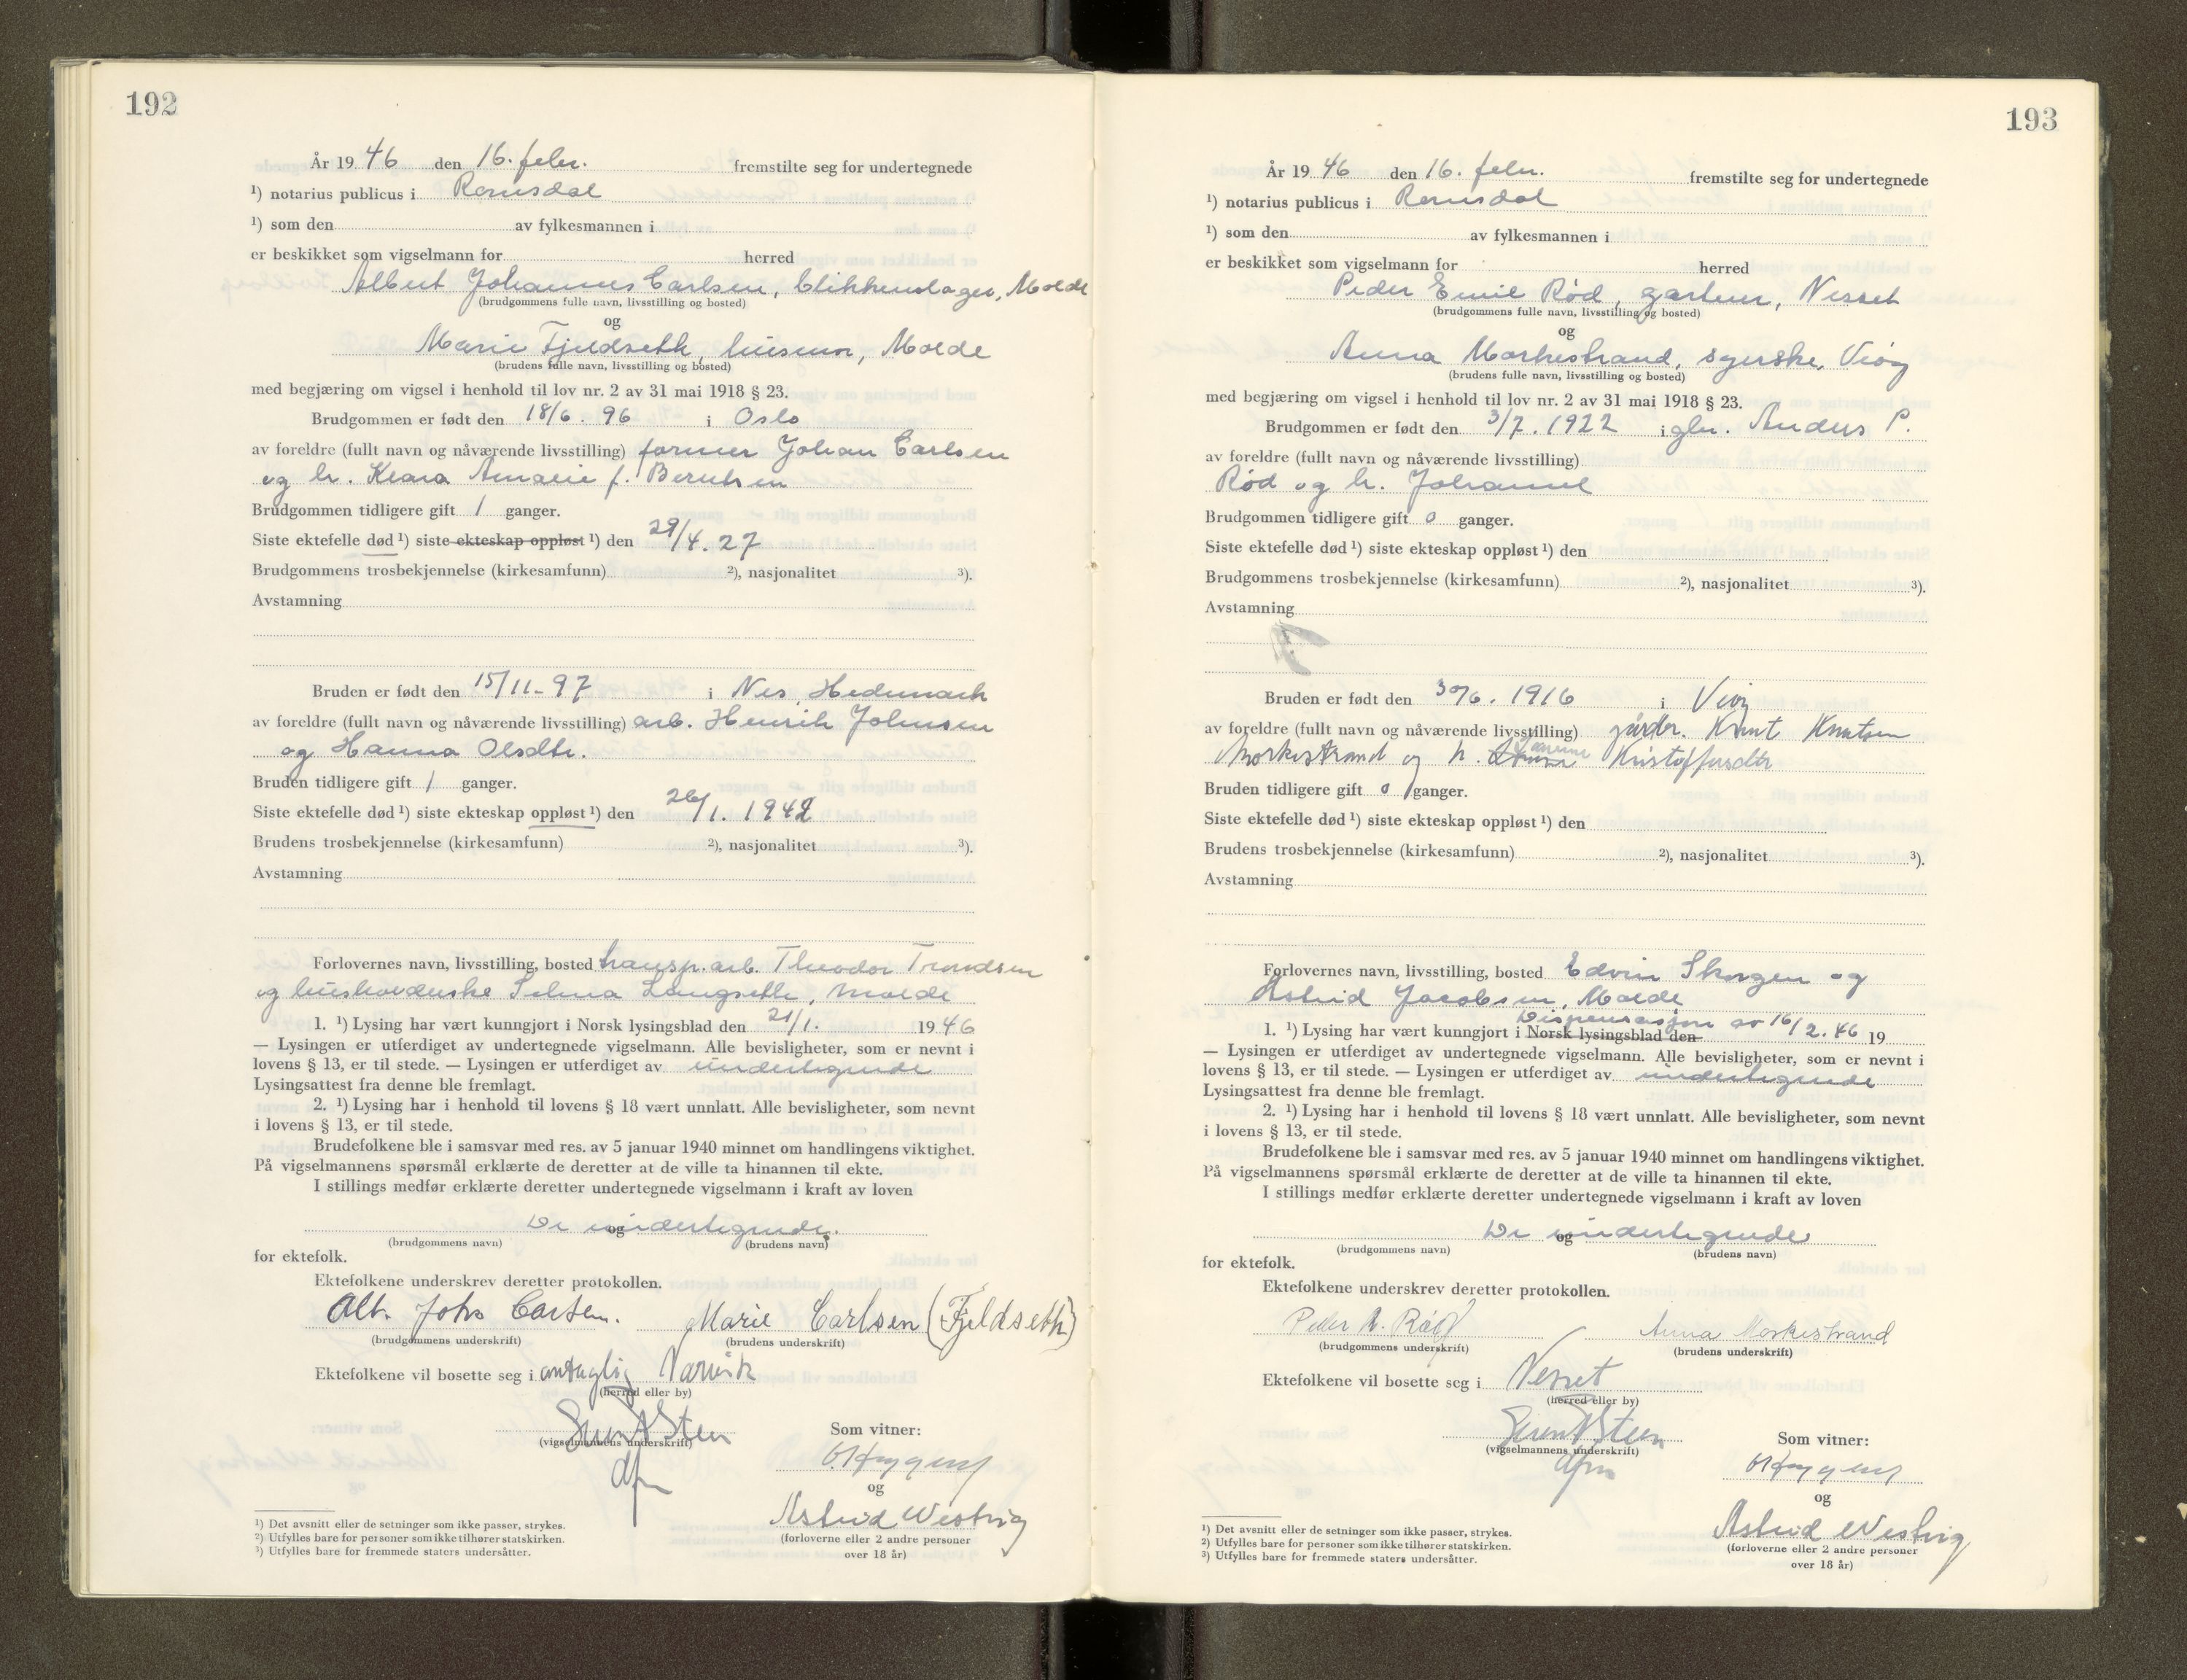 192
År 19 46 den 16. febr. fremstilte seg for undertegnede
¹) notarius publicus i Romsdal
¹) som den av fylkesmannen i
er beskikket som vigselmann for herred
Albert Johannes Carlsen, blikkenslager, Molde
(brudgommens fulle navn, livsstilling og bosted)
og
Marie Fjeldseth, husmor, Molde
(brudens fulle navn, livsstilling og bosted)
med begjæring om vigsel i henhold til lov nr. 2 av 31 mai 1918 § 23.
Brudgommen er født den 18/6. 96 i Oslo
av foreldre (fullt navn og nåværende livsstilling) former Johan Carlsen
og h. Klara Amalie f. Berntsen
Brudgommen tidligere gift 1 ganger.
Siste ektefelle død ¹) siste ekteskap oppløst ¹) den 29/4. 27
Brudgommens trosbekjennelse (kirkesamfunn) ²), nasjonalitet ³).
Avstamning
Bruden er født den 15/11-97 i Nes, Hedemark
av foreldre (fullt navn og nåværende livsstilling) arb. Henrik Johnsen
og Hanna Olsdtr.
Bruden tidligere gift 1 ganger.
Siste ektefelle død ¹) siste ekteskap oppløst ¹) den 26/1. 1942
Brudens trosbekjennelse (kirkesamfunn) ²), nasjonalitet ³).
Avstamning
Forlovernes navn, livsstilling, bosted transp.arb. Theodor Trondsen
og husholderske Selma Langseth, Molde
1. ¹) Lysing har vært kunngjort i Norsk lysingsblad den 21/1. 19 46
— Lysingen er utferdiget av undertegnede vigselmann. Alle bevisligheter, som er nevnt i
lovens § 13, er til stede. — Lysingen er utferdiget av undertegnede
Lysingsattest fra denne ble fremlagt.
2. ¹) Lysing har i henhold til lovens § 18 vært unnlatt. Alle bevisligheter, som nevnt
i lovens § 13, er til stede.
Brudefolkene ble i samsvar med res. av 5 januar 1940 minnet om handlingens viktighet.
På vigselmannens spørsmål erklærte de deretter at de ville ta hinannen til ekte.
I stillings medfør erklærte deretter undertegnede vigselmann i kraft av loven
De undertegnede.
og
(brudgommens navn) (brudens navn)
for ektefolk.
Ektefolkene underskrev deretter protokollen.
Alb. Johs Carlsen. Marie Carlsen (Fjeldseth)
(brudgommens underskrift) (brudens underskrift)
Ektefolkene vil bosette seg i antaglig Narvik
(herred eller by)
Steen
(vigselmannens underskrift)
Som vitner:
dfm
og
Astrid Westvig
(forloverne eller 2 andre personer
over 18 år)
¹) Det avsnitt eller de setninger som ikke passer, strykes.
²) Utfylles bare for personer som ikke tilhører statskirken.
³) Utfylles bare for fremmede staters undersåtter.
193
År 19 46 den 16. febr. fremstilte seg for undertegnede
¹) notarius publicus i Romsdal
¹) som den av fylkesmannen i
er beskikket som vigselmann for herred
Peder Emil Rød, gartner, Nesset
(brudgommens fulle navn, livsstilling og bosted)
og
Anna Morkestrand, syerske, Veøy
(brudens fulle navn, livsstilling og bosted)
med begjæring om vigsel i henhold til lov nr. 2 av 31 mai 1918 § 23.
Brudgommen er født den 3/7. 1922 i gbr. Anders P.
av foreldre (fullt navn og nåværende livsstilling)
Rød og h. Johanne
Brudgommen tidligere gift 0 ganger.
Siste ektefelle død ¹) siste ekteskap oppløst ¹) den
Brudgommens trosbekjennelse (kirkesamfunn) ²), nasjonalitet ³).
Avstamning
Bruden er født den 30/6. 1916 i Veøy
av foreldre (fullt navn og nåværende livsstilling) gårdbr. Knut Knutsen
Morkestrand og h. Kristoffersdtr
Bruden tidligere gift 0 ganger.
Siste ektefelle død ¹) siste ekteskap oppløst ¹) den
Brudens trosbekjennelse (kirkesamfunn) ²), nasjonalitet ³).
Avstamning
Forlovernes navn, livsstilling, bosted Edvin Skorgen og
Astrid Jacobsen, Molde
Dispensasjon av 16/2. 46
1. ¹) Lysing har vært kunngjort i Norsk lysingsblad den 19
— Lysingen er utferdiget av undertegnede vigselmann. Alle bevisligheter, som er nevnt i
lovens § 13, er til stede. — Lysingen er utferdiget av undertegnede
Lysingsattest fra denne ble fremlagt.
2. ¹) Lysing har i henhold til lovens § 18 vært unnlatt. Alle bevisligheter, som nevnt
i lovens § 13, er til stede.
Brudefolkene ble i samsvar med res. av 5 januar 1940 minnet om handlingens viktighet.
På vigselmannens spørsmål erklærte de deretter at de ville ta hinannen til ekte.
I stillings medfør erklærte deretter undertegnede vigselmann i kraft av loven
De undertegnede
og
(brudgommens navn) (brudens navn)
for ektefolk.
Ektefolkene underskrev deretter protokollen.
Peder Rød Anna Morkestrand
(brudgommens underskrift) (brudens underskrift)
Ektefolkene vil bosette seg i Nesset
(herred eller by)
Steen
(vigselmannens underskrift)
Som vitner:
dfm
og
Astrid Westvig
(forloverne eller 2 andre personer
over 18 år)
¹) Det avsnitt eller de setninger som ikke passer, strykes.
²) Utfylles bare for personer som ikke tilhører statskirken.
³) Utfylles bare for fremmede staters undersåtter.